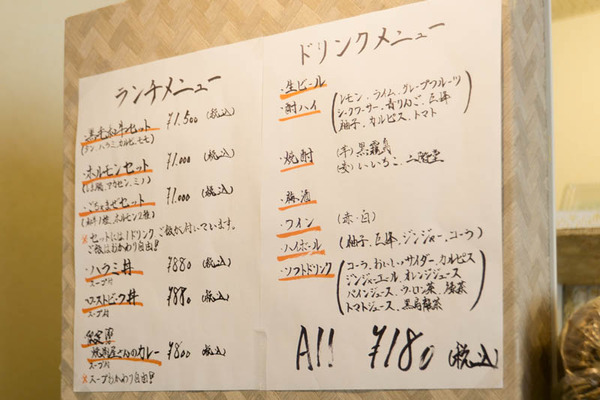 ランチメニュー
・黒毛和牛セット ¥1,500 (税込)
(タン、ハラミ、カルビ、モモ)
・ホルモンセット ¥1,000 (税込)
(しま腸、アカセン、ミノ)
・ごちゃまぜセット ¥1,000 (税込)
(和牛1種、ホルモン2種)
※セットには1ドリンク ご飯が付いています。
ご飯はおかわり自由!!
・ハラミ丼 ¥880 (税込)
スープ付
・ローストビーフ丼 ¥880 (税込)
スープ付
焼肉屋さんのカレー ¥800 (税込)
スープ付
※スープおかわり自由!!
ドリンクメニュー
・生ビール
・酎ハイ (レモン、ライム、グレープフルーツ
シークワーサー、青りんご、巨峰
柚子、カルピス、トマト)
・焼酎 (芋) 黒霧島
(麦) いいちこ、二階堂
・梅酒
・ワイン (赤・白)
・ハイボール (柚子、巨峰、ジンジャー、コーラ)
・ソフトドリンク (コーラ、おいしいサイダー、カルピス
ジンジャーエール、オレンジジュース
パインジュース、ウーロン茶、緑茶
トマトジュース、黒烏龍茶)
All ¥180 (税込)